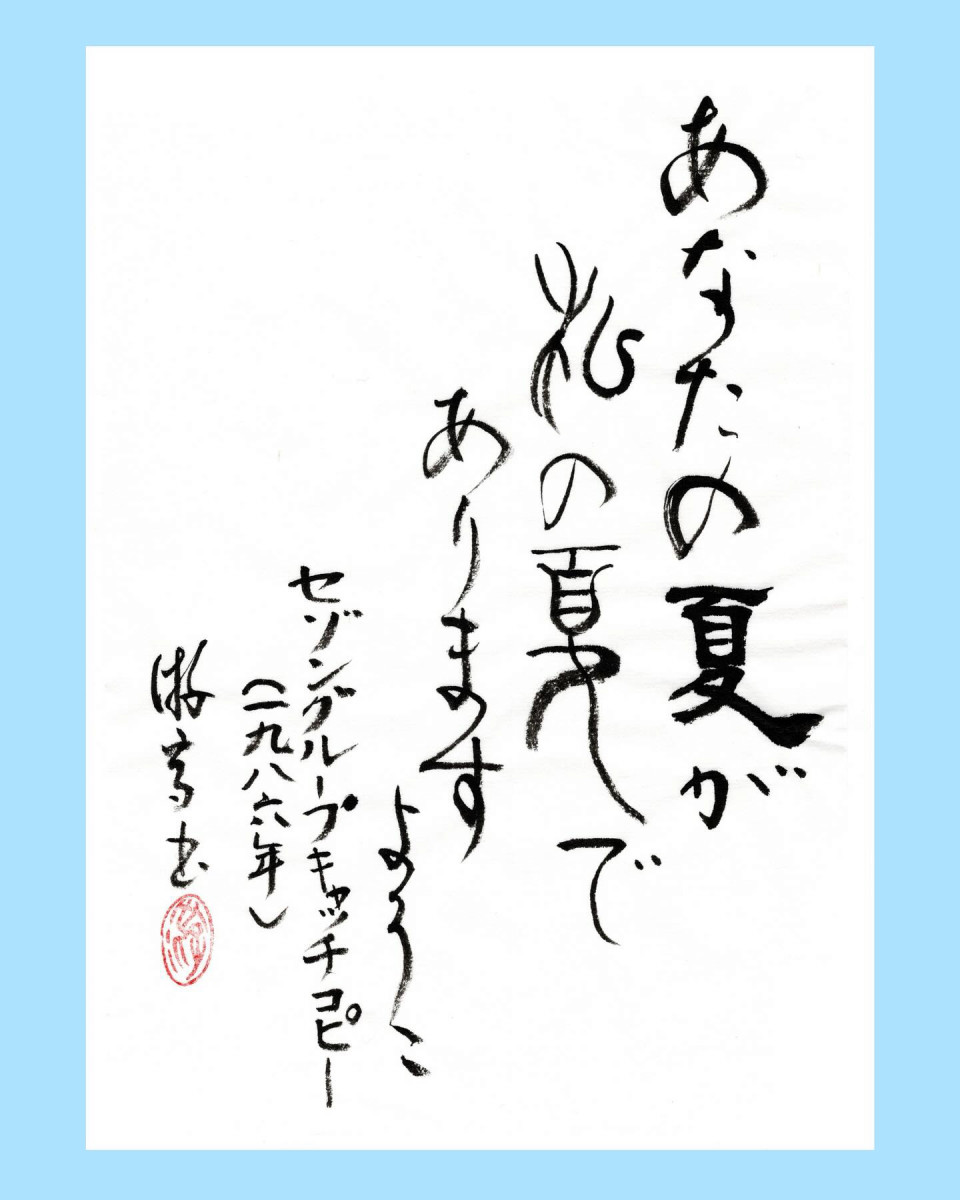 あなたの夏が
私の夏で
あります
ように
セゾングループキャッチコピー
（一九八六年）
游 書